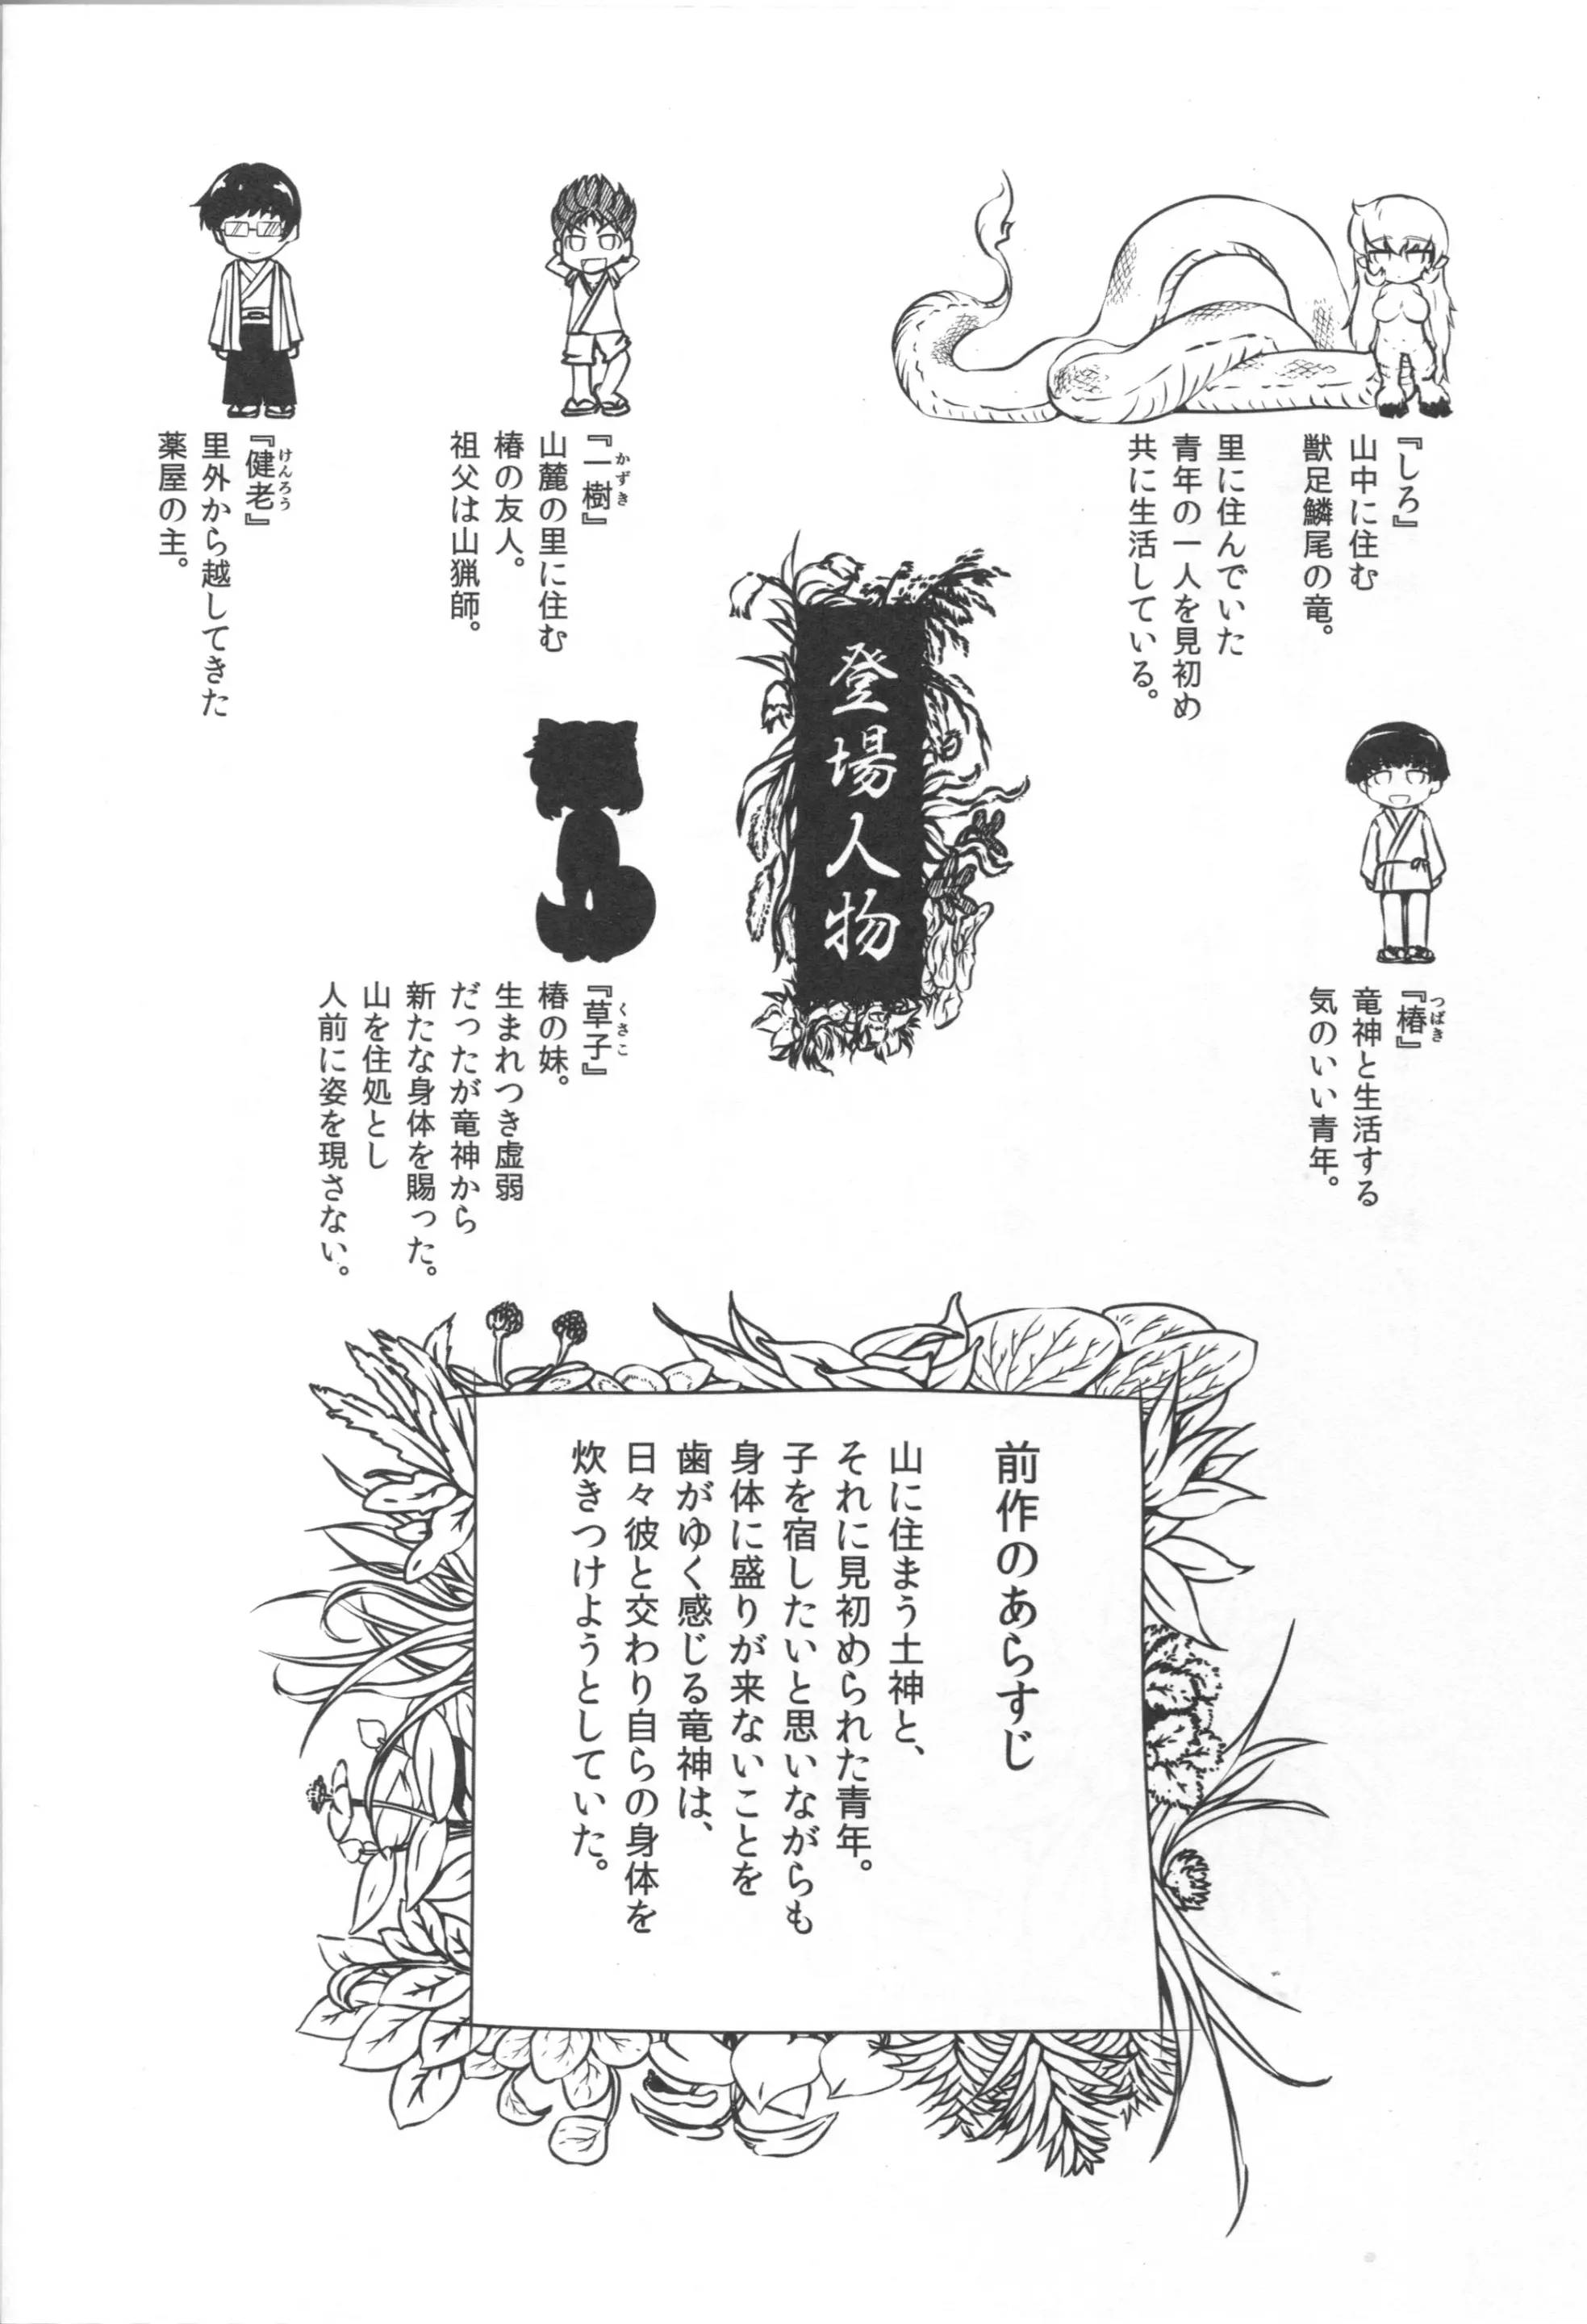 『しろ』
山中に住む
獣足鱗尾の竜。
里に住んでいた
青年の一人を見初め
共に生活している。
『椿』
つばき
竜神と生活する
気のいい青年。
登場人物
『一樹』
かずき
山麓の里に住む
椿の友人。
祖父は山猟師。
『草子』
くさこ
椿の妹。
生まれつき虚弱
だったが竜神から
新たな身体を賜った。
山を住処とし
人前に姿を現さない。
『健老』
けんろう
里外から越してきた
薬屋の主。
前作のあらすじ
山に住まう土神と、
それに見初められた青年。
子を宿したいと思いながらも
身体に盛りが来ないことを
歯がゆく感じる竜神は、
日々彼と交わり自らの身体を
炊きつけようとしていた。